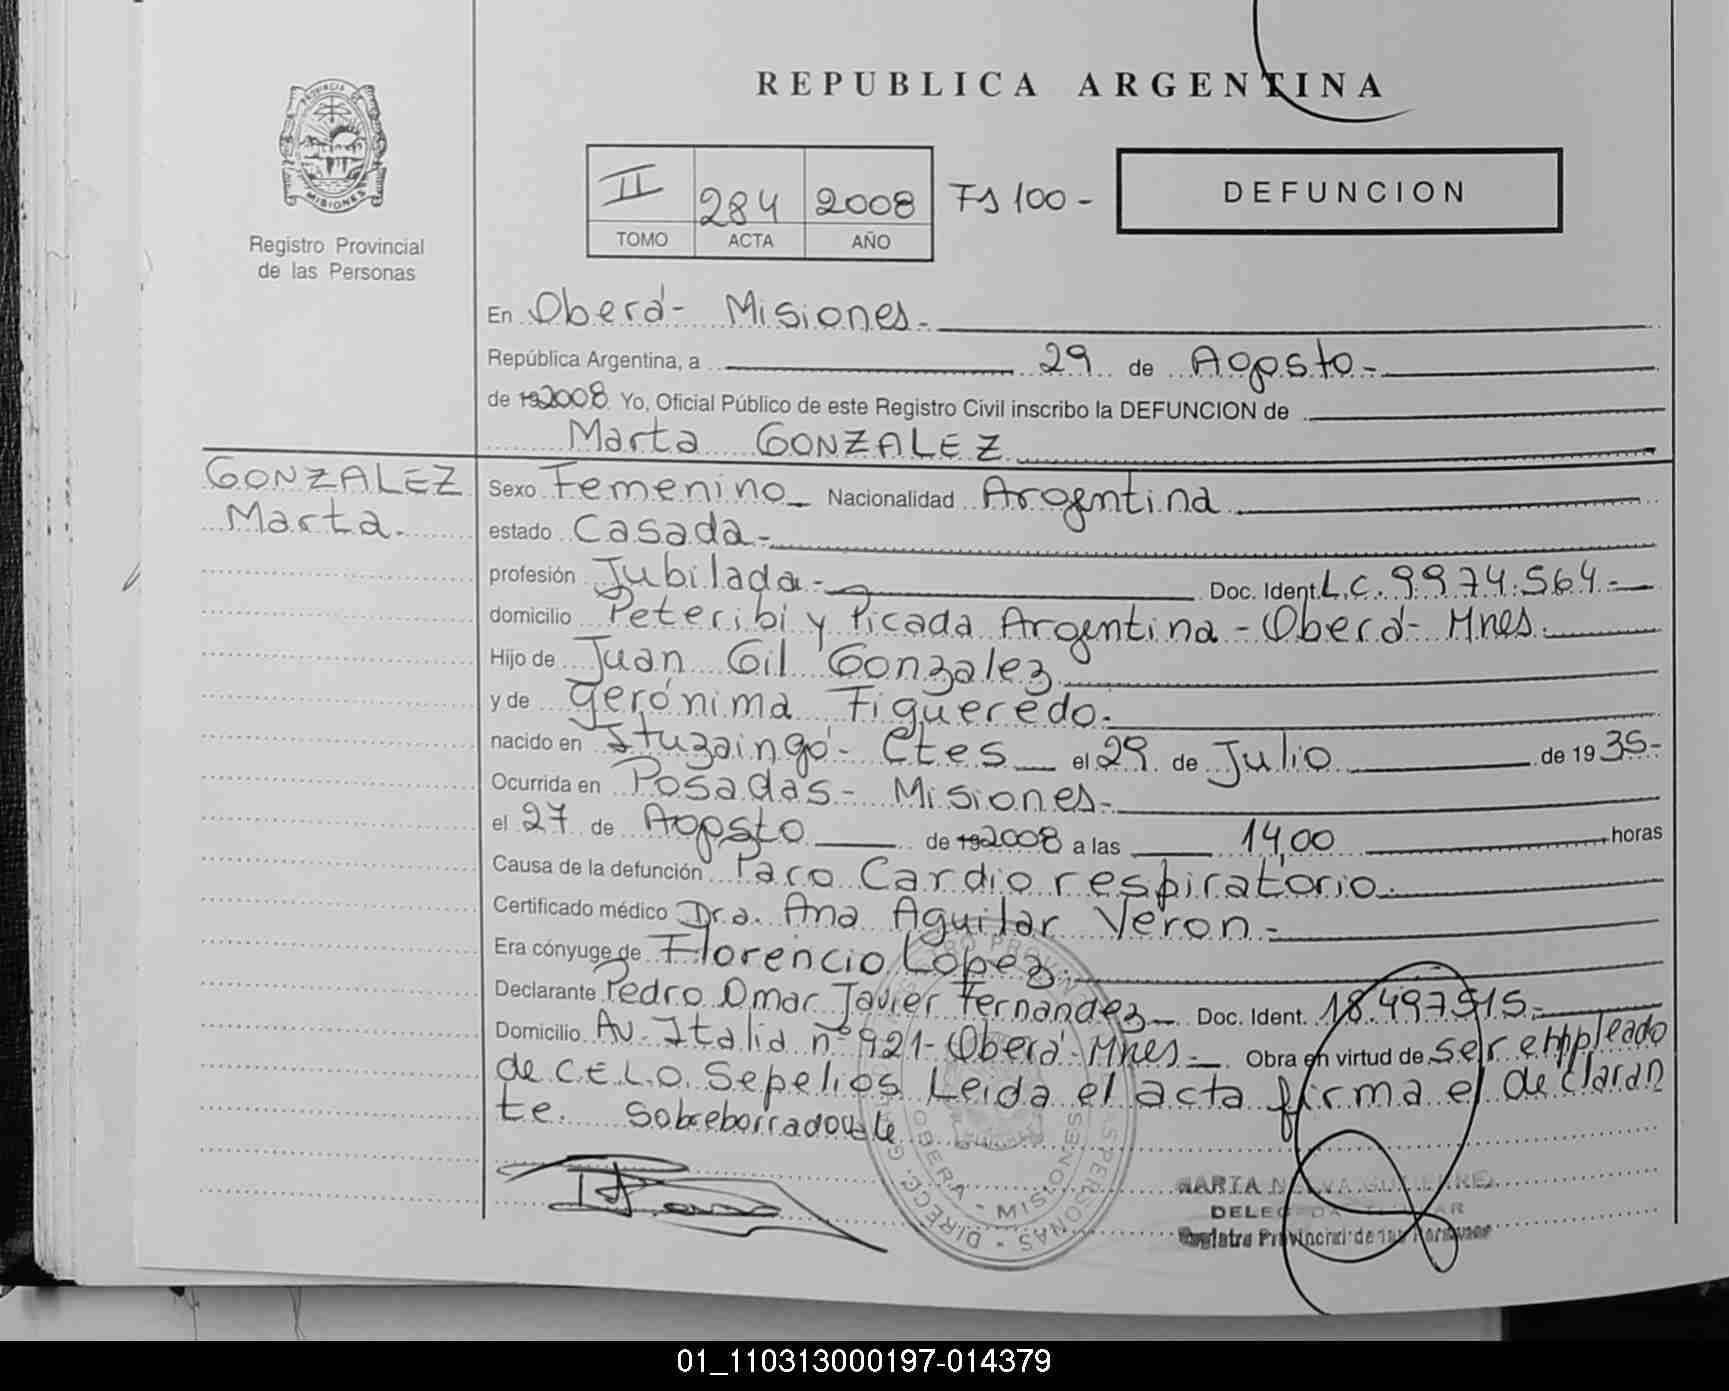 REPUBLICA ARGENTINA
PROVINCIA DE
MISIONES
Registro Provincial
de las Personas
II 284 2008 Fs 100-
TOMO ACTA AÑO
DEFUNCION
En Oberá- Misiones.-
República Argentina, a 29 de Agosto-
de 192008. Yo, Oficial Público de este Registro Civil inscribo la DEFUNCION de
Marta GONZALEZ
GONZALEZ
Marta.
Sexo Femenino- Nacionalidad Argentina
estado Casada-
profesión Jubilada- Doc. Ident. L.C. 9974.564-
domicilio Peteribí y Picada Argentina - Oberá- Mnes.
Hijo de Juan Gil Gonzalez
y de Gerónima Figueredo.
nacido en Ituzaingó- Ctes el 29 de Julio de 1935-
Ocurrida en Posadas- Misiones-
el 27 de Agosto de 192008 a las 14,00 horas
Causa de la defunción Paro Cardio respiratorio
Certificado médico Dra. Ana Aguilar Veron-
Era cónyuge de Florencio Lopez
Declarante Pedro Omar Javier Fernandez- Doc. Ident. 18.497515-
Domicilio Av. Italia nº 921- Oberá- Mnes- Obra en virtud de ser empleado
de C.E.L.O. Sepelios Leida el acta firma el declaran
te. Sobreborrado
OBERA - MISIONES
MARTA
Registro Provincial de las Personas
01_110313000197-014379